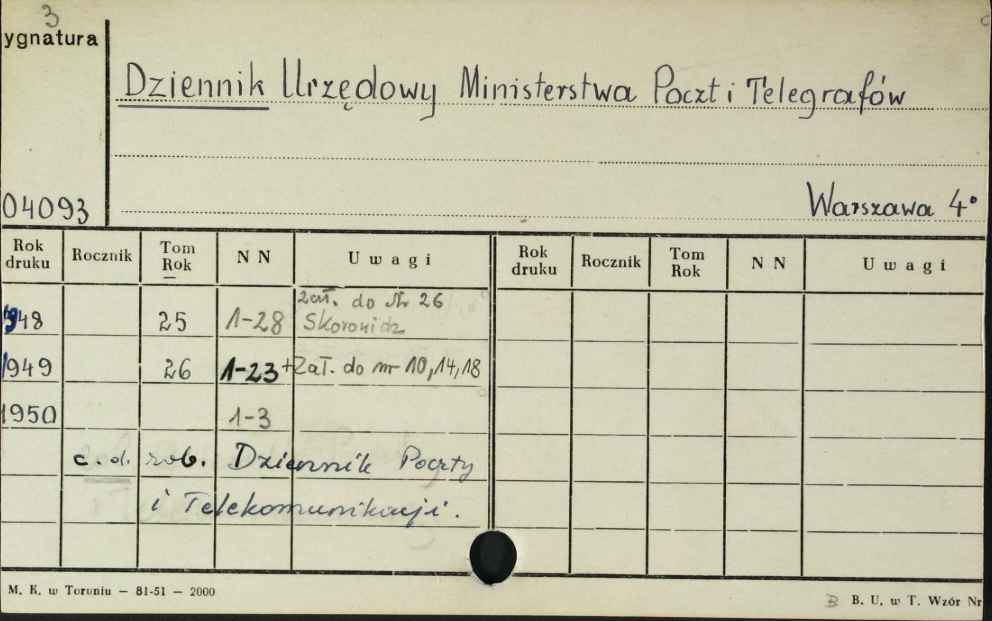 3
ygnatura
Dziennik Urzędowy Ministerstwa Poczt i Telegrafów
04093
Warszawa 4°
Rok druku Rocznik Tom Rok NN Uwagi Rok druku Rocznik Tom Rok NN Uwagi
1948 25 1-28 Zał. do Nr 26 Skorowidz
1949 26 1-23 + Zał. do nr 10, 14, 18
1950 1-3
c. d. rob. Dziennik Poczty
i Telekomunikacji.
M. K. w Toruniu — 81-51 — 2000
B. U. w T. Wzór Nr